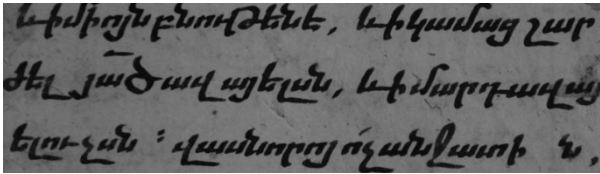 և ի միոյն բնութենէ, և ի կամաց շար
ժել յած ավայելան, և ի մարդավայ
ելուչան : վասնորոյ ոչ անջատի ն,